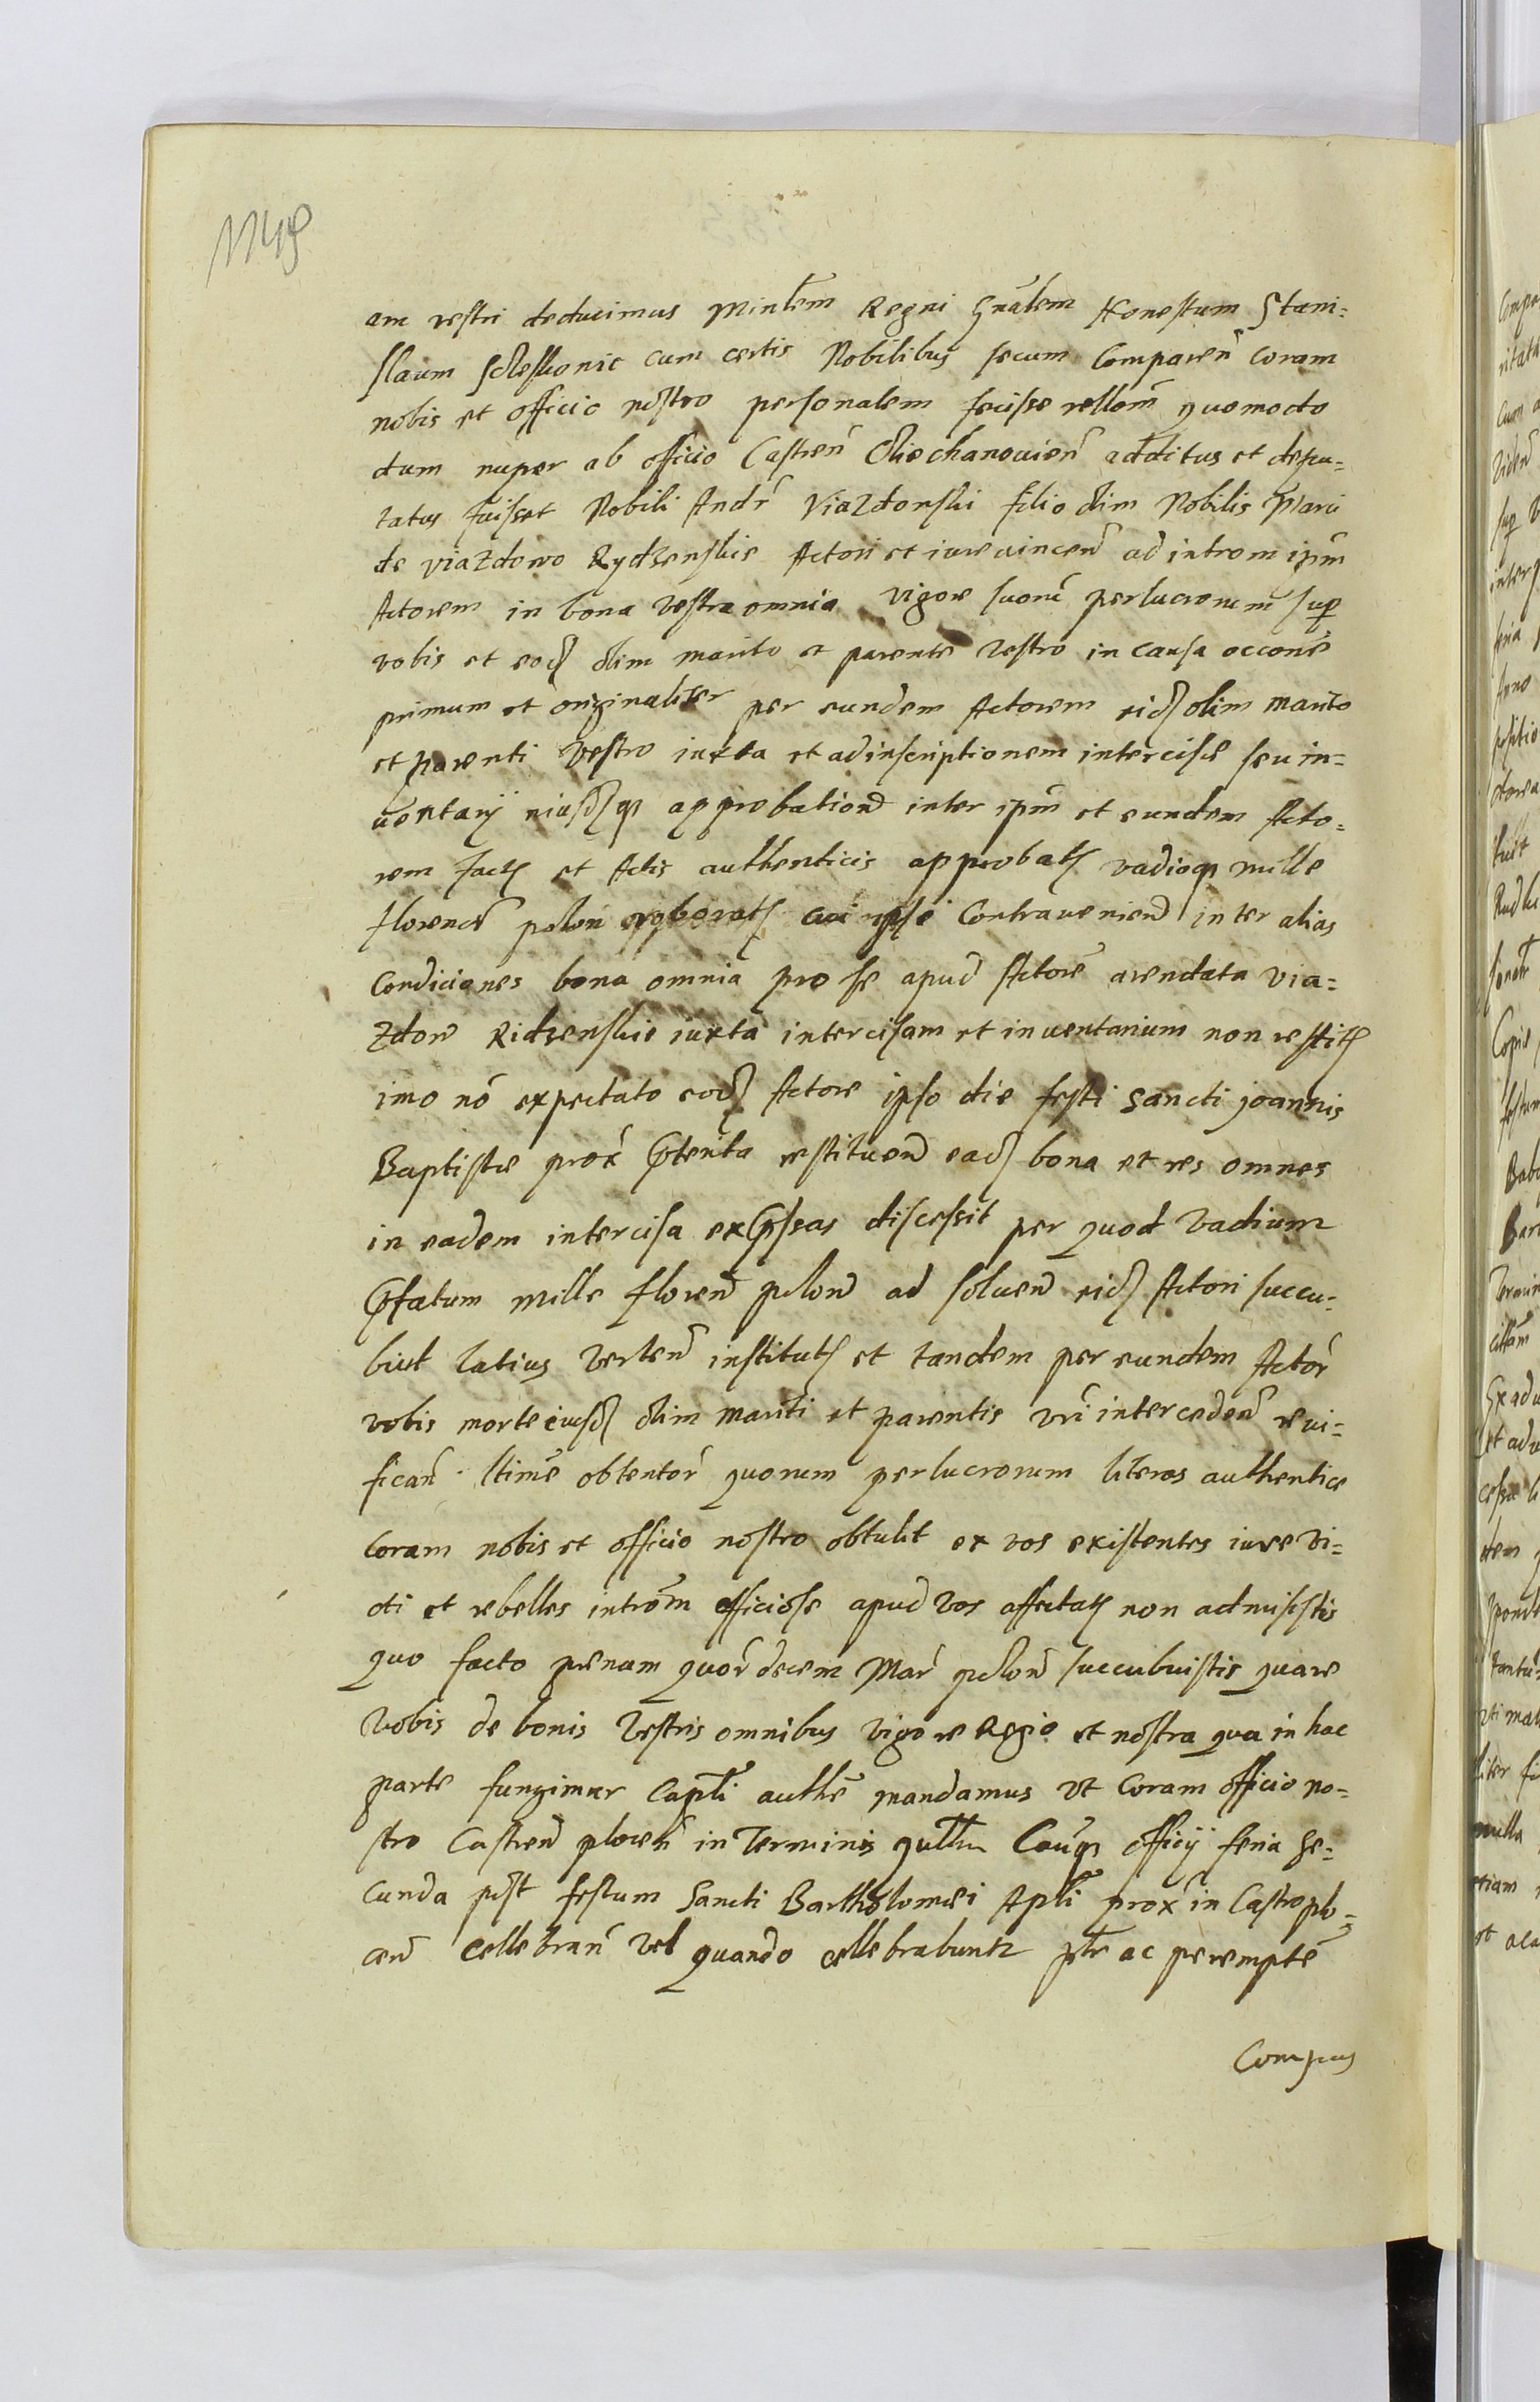 am vestri deducimus Minlem Regni Gnalem Honestum Stani=
slaum cum certis Nobilibus secum Comparen coram
nobis et officio nostro personalem fecisse rellom quomodo
dum nuper ab officio Castren Ciechanovien additus et depu=
tatus fuisset Nobili Andr Viazdowski filio olim Nobilis
de Viazdowo Rydzenskie Actori et iure vincen ad introm ipm
Actorem in bona vestra omnia vigore suoru perlucrorum sup
vobis et eod olim marito et parente vestro in causa occone
primum et originaliter per eundem Actorem eid olim marito
et parenti vestro iuxta et ad inscriptionem intercise seu in=
ventarij eiusdq approbatione inter ipm et eundem Acto=
rem fact et Actis authenticis approbat vadioq mille
floren polon roborat cui ipse Contravenien inter alias
Condiciones bona omnia pro se apud Actore arendata Via=
zdow Ridzenskie iuxta intercisam et inventarium non restit
imo no expectato eod Actore ipso die festi Sancti Joannis
Baptiste prox pterita restituen ead bona et res omnes
in eadem intercisa expssas discessit per quod vadium
pfatum mille floren polon ad solven eid Actori succu=
buit latius verten institut et tandem per eundem Actor
vobis morte eiusd olim mariti et parentis vri interceden revi=
fican ltime obtentor quorum perlucrorum literas authentice
Coram nobis et officio nostro obtulit ex vos existentes iure vi=
cti et rebelles introm officiose apud vos affectat non admisistis
quo facto penam quor decem Mar polon succubuistis quare
Vobis de bonis vestris omnibus vigore Regio et nostra qua in hac
parte fungimur Capli authe mandamus ut Coram officio no=
stro Castren plocen in Terminis qullm Cauq officij feria se=
cunda post festum Sancti Bartholomei Apli prox in Castro plo=
cen cellebran vel quando cellebrabuntr ptr ac perempte
Compus